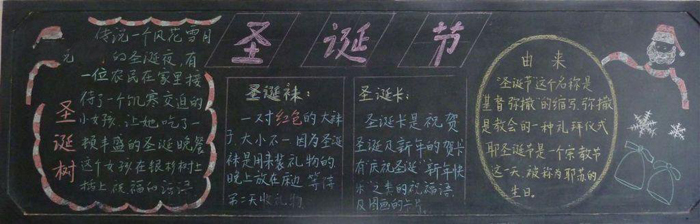 圣诞节
传说一个风花雪月
的圣诞夜,有
一位农民在家里接
待了一个饥寒交迫的
小女孩,让她吃了一
顿丰盛的圣诞晚餐
这个女孩在银杉树上
祝福的话语
圣诞树
圣诞袜:
一对红色的大袜
子,大小不一因为圣诞
袜是用来装礼物的
晚上放在床边 等待
第二天收礼物
圣诞卡:
圣诞卡是祝贺
圣诞及新年的贺卡
有"庆祝圣诞""新年快
乐"之类的祝福语
及图画的卡片
由来
"圣诞节"这个名称是
基督弥撒"的缩写,弥撒
是教会的一种礼拜仪式
耶圣诞节是一个宗教节
这一天,被称为耶苏的
生日。